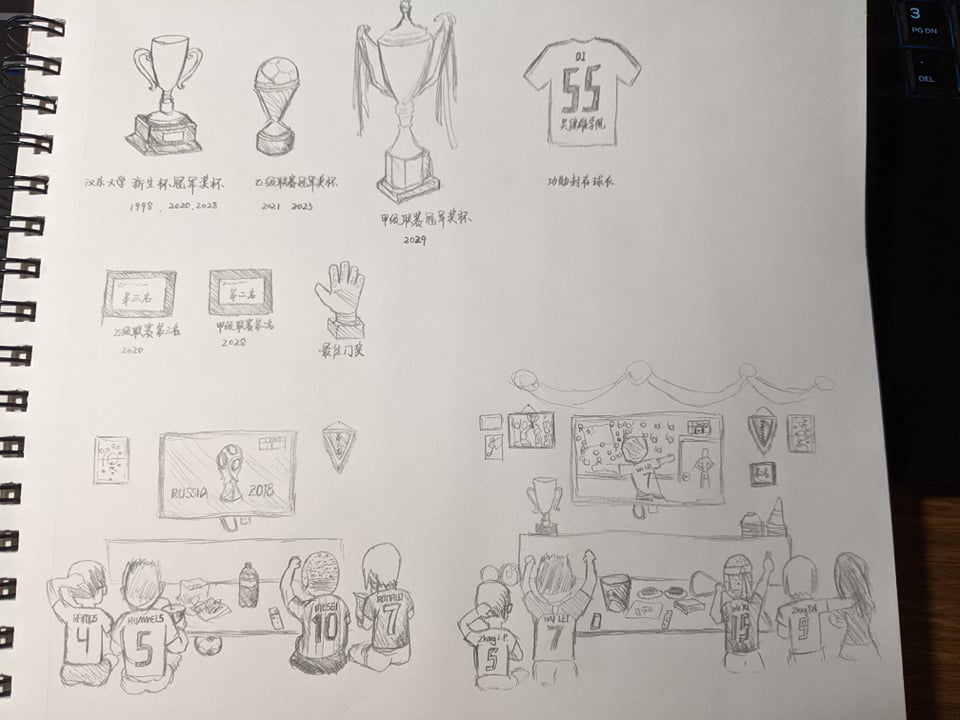 汉东大学 新生杯冠军奖杯
1998、2020、2028
乙级联赛冠军奖杯
2021、2023
甲级联赛冠军奖杯
2029
DI
55
学院
功勋封存球衣
第三名
乙级联赛第三名
2020
第二名
甲级联赛第二名
2028
最佳门奖
RUSSIA 2018
RAMOS
4
HUMMELS
5
MESSI
10
RONALDO
7
WU LEI
7
Zhang L.P.
5
WU LEI
7
WU XI
15
9
3
PG DN
DEL